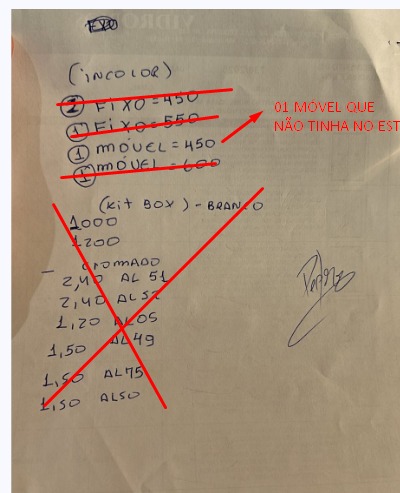 (INCOLOR)
2 FIXO = 450
1 FIXO = 550
1 MÓVEL = 450
1 MÓVEL = 600
01 MÓVEL QUE
NÃO TINHA NO EST
(KIT BOX) - BRANCO
1000
1200
- CROMADO
2,40 AL 51
2,40 AL 52
1,20 AL05
1,50 AL49
1,50 AL75
1,50 AL50